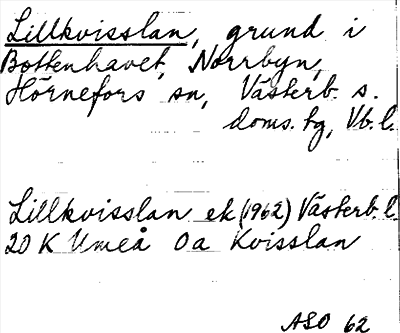 Lillkvisslan, grund i
Bottenhavet, Norrbyn,
Hörnefors sn, Västerb. s.
doms. tg, Vb. l.
Lillkvisslan ek (1962) Västerb. l.
20 K Umeå 0a Kvisslan
ASO 62